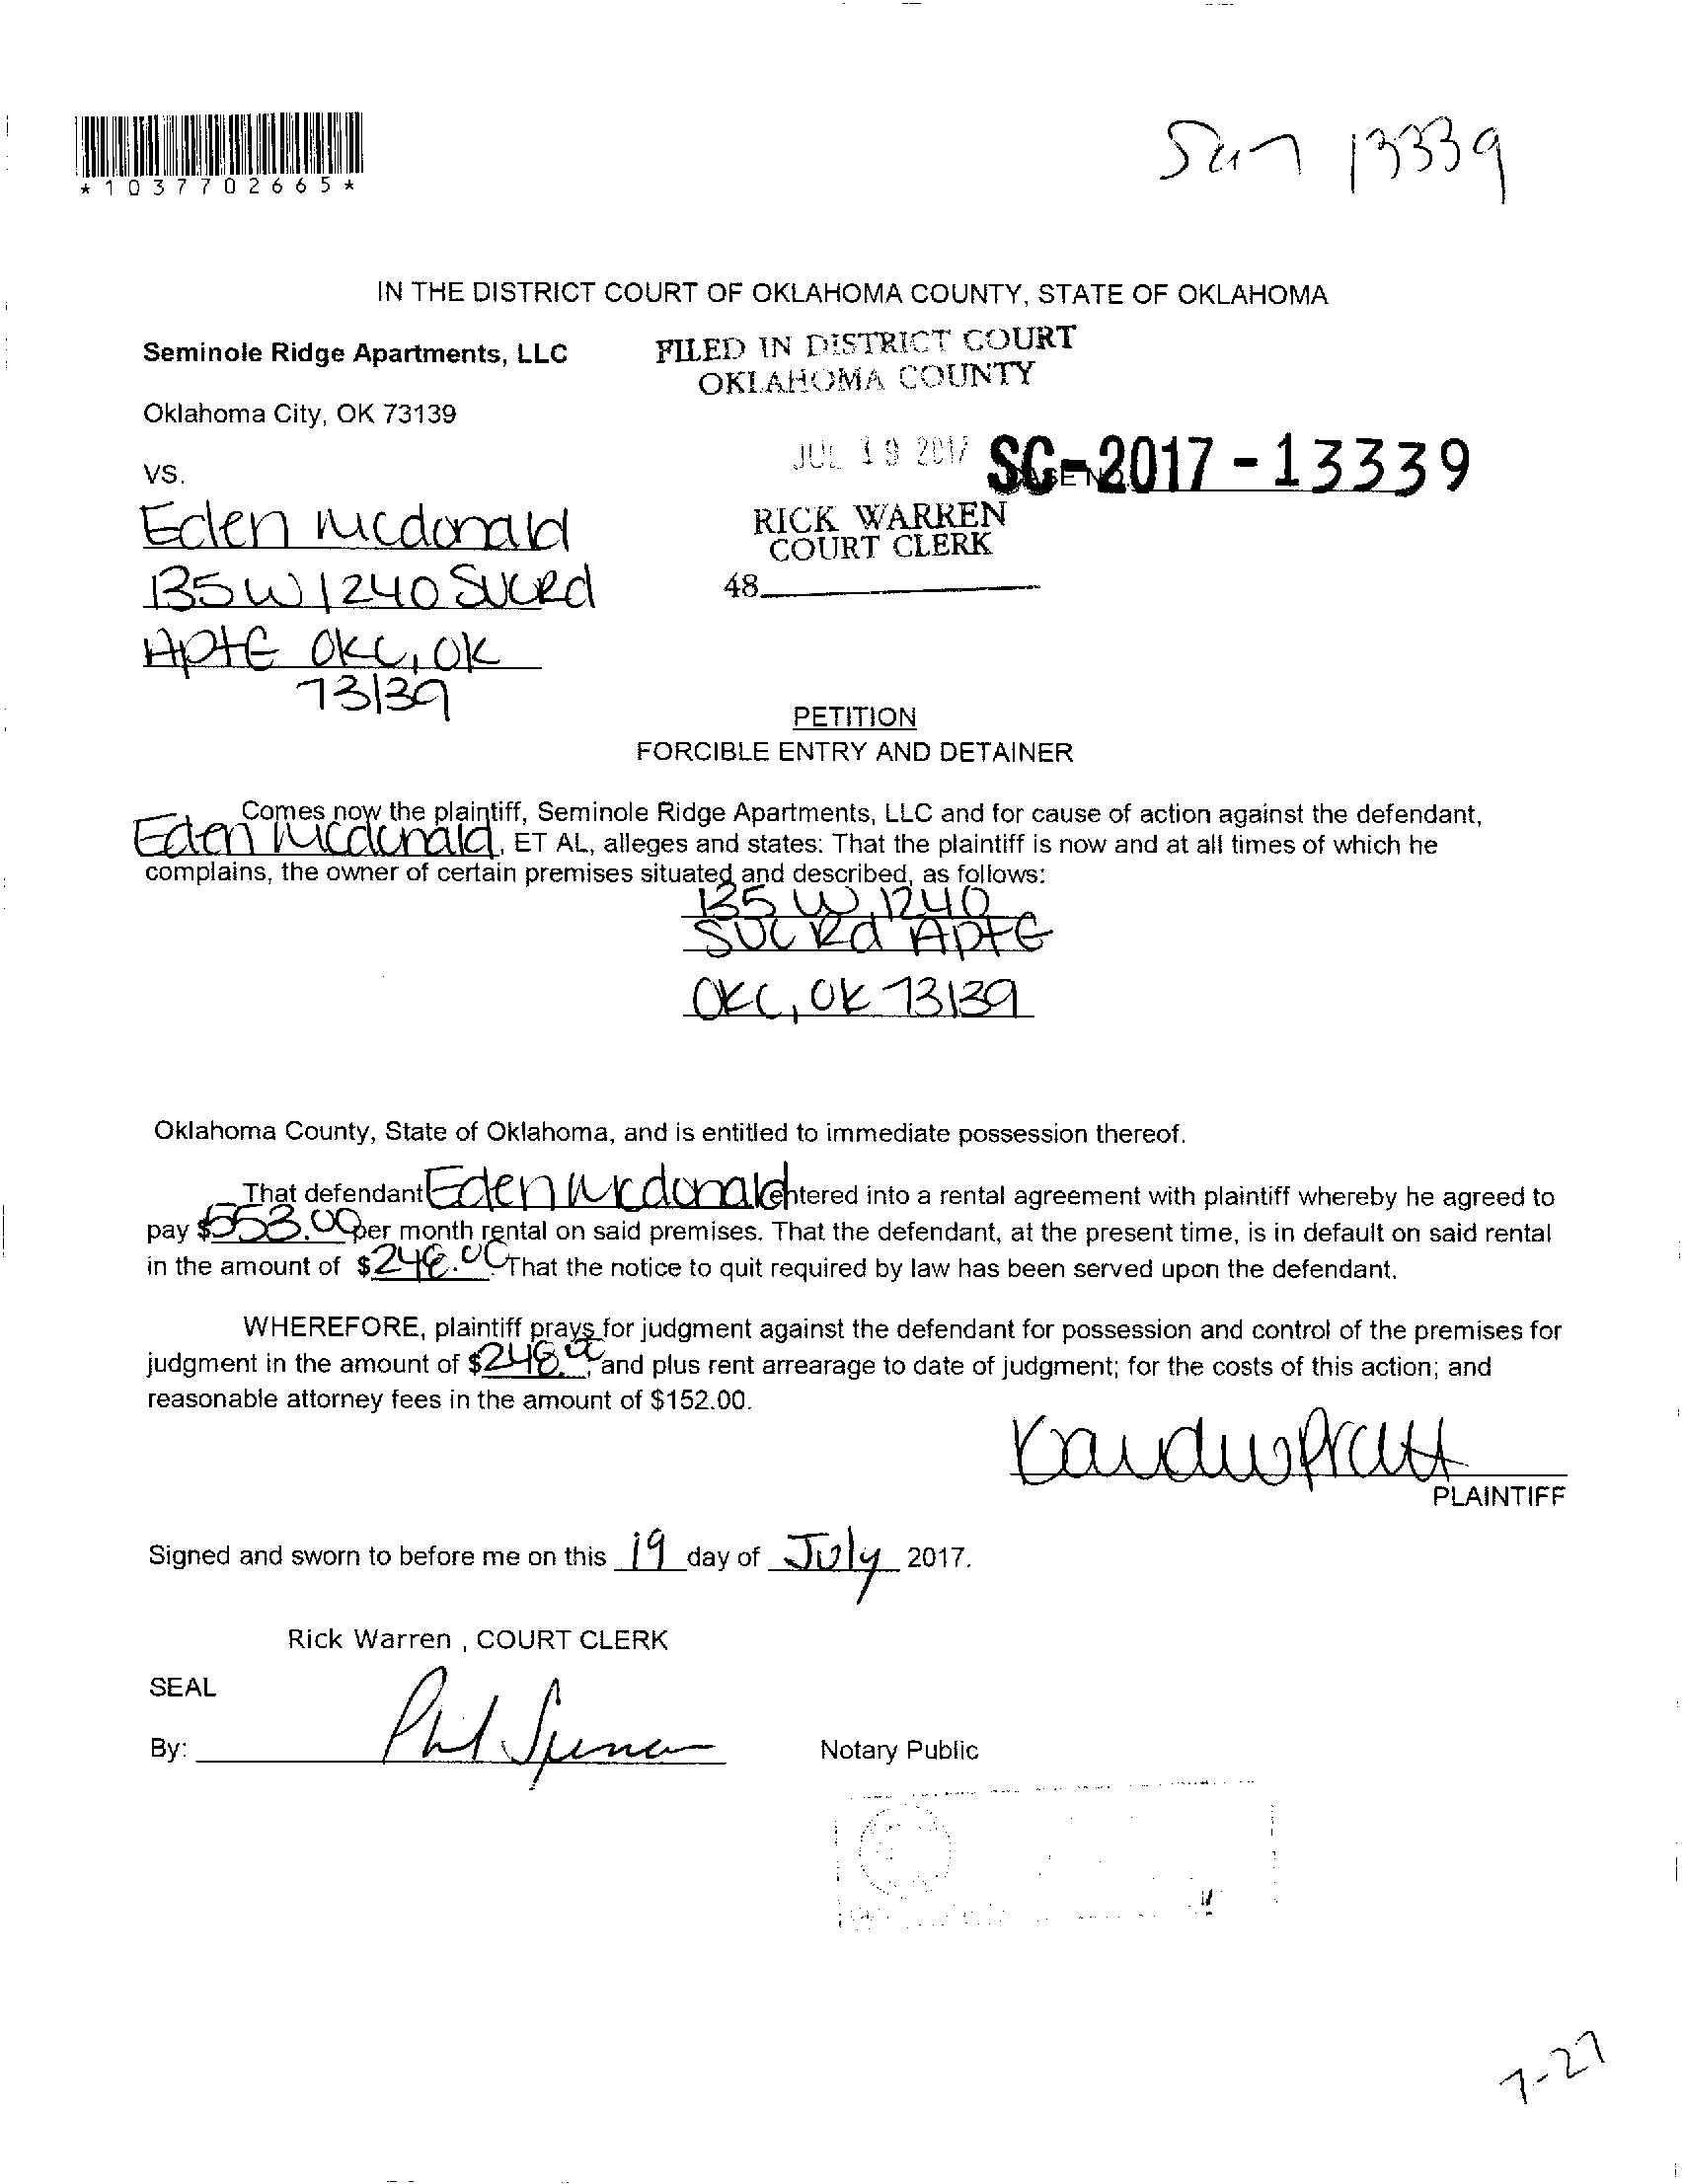 *1037702665*
13339
IN THE DISTRICT COURT OF OKLAHOMA COUNTY, STATE OF OKLAHOMA
Seminole Ridge Apartments, LLC
FILED IN DISTRICT COURT
OKLAHOMA COUNTY
Oklahoma City, OK 73139
JUL 19 2017 SC-2017-13339
VS.
Eden Mcdonald
RICK WARREN
COURT CLERK
135 W 1240 Rd
48
Apt OKC, OK
73139
PETITION
FORCIBLE ENTRY AND DETAINER
Comes now the plaintiff, Seminole Ridge Apartments, LLC and for cause of action against the defendant,
Eden Mcdonald, ET AL, alleges and states: That the plaintiff is now and at all times of which he
complains, the owner of certain premises situated and described, as follows:
135 W, 1240
Rd Apt
OKC, OK 73139
Oklahoma County, State of Oklahoma, and is entitled to immediate possession thereof.
That defendant Eden Mcdonald entered into a rental agreement with plaintiff whereby he agreed to
pay $553.00 per month rental on said premises. That the defendant, at the present time, is in default on said rental
in the amount of $248.00 That the notice to quit required by law has been served upon the defendant.
WHEREFORE, plaintiff prays for judgment against the defendant for possession and control of the premises for
judgment in the amount of $248.00, and plus rent arrearage to date of judgment; for the costs of this action; and
reasonable attorney fees in the amount of $152.00.
Pratt
PLAINTIFF
Signed and sworn to before me on this 19 day of July 2017.
Rick Warren , COURT CLERK
SEAL
By:
Notary Public
7-27